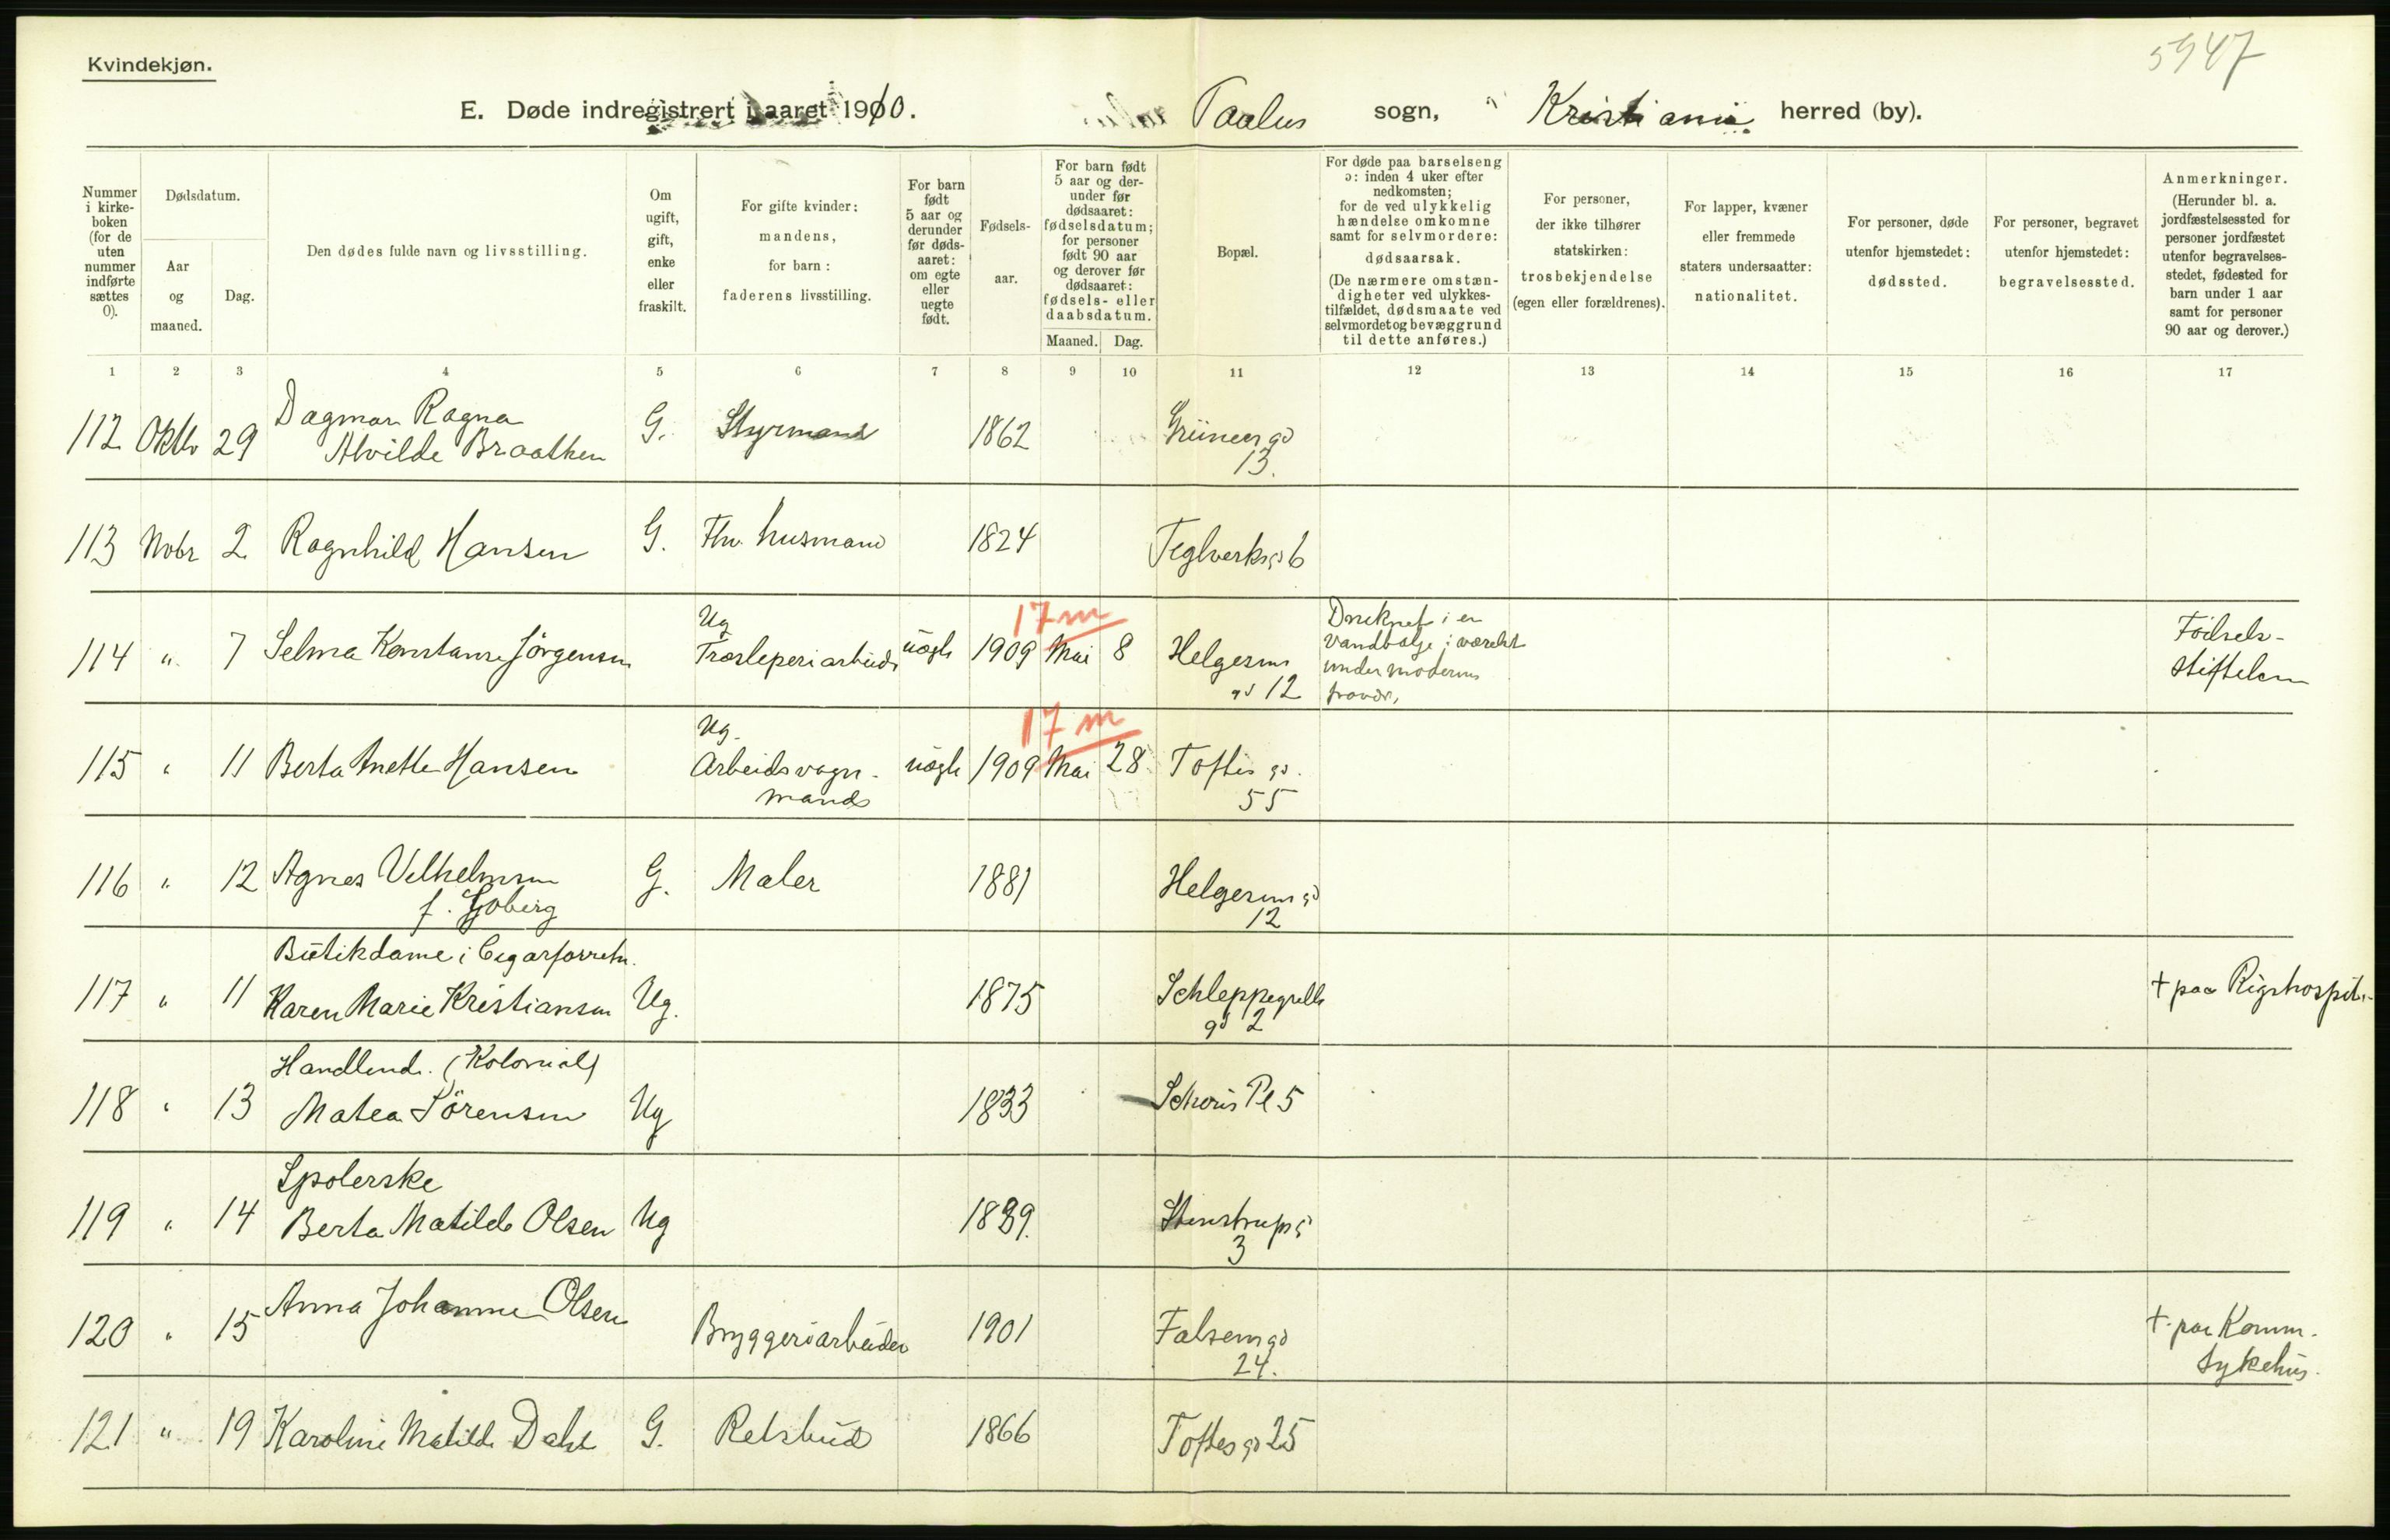 5947
Kvindekjøn.
E. Døde indregistrert i aaret 1910. Paulus sogn, Kristiania herred (by).
Nummer i kirke-boken (for de uten nummer indførte sættes 0).
Dødsdatum.
Aar og maaned.
Dag.
Den dødes fulde navn og livsstilling.
Om ugift, gift, enke eller fraskilt.
For gifte kvinder: mandens, for barn: faderens livsstilling.
For barn født 5 aar og derunder før døds-aaret: om egte eller uegte født.
Fødsels-aar.
For barn født 5 aar og der-under før dødsaaret: fødselsdatum; for personer født 90 aar og derover før dødsaaret: fødsels- eller daabsdatum.
Maaned. Dag.
Bopæl.
For døde paa barselseng ɔ: inden 4 uker efter nedkomsten; for de ved ulykkelig hændelse omkomne samt for selvmordere: dødsaarsak. (De nærmere omstæn-digheter ved ulykkes-tilfældet, dødsmaate ved selvmordet og bevæggrund til dette anføres.)
For personer, der ikke tilhører statskirken: trosbekjendelse (egen eller forældrenes).
For lapper, kvæner eller fremmede staters undersaatter: nationalitet.
For personer, døde utenfor hjemstedet: dødssted.
For personer, begravet utenfor hjemstedet: begravelsessted.
Anmerkninger. (Herunder bl. a. jordfæstelsessted for personer jordfæstet utenfor begravelses-stedet, fødested for barn under 1 aar samt for personer 90 aar og derover.)
1 2 3 4 5 6 7 8 9 10 11 12 13 14 15 16 17
112 Oktb 29 Dagmar Ragna
Alvilde Braathen G. Styrmand 1862 Grüners gd
13.
113 Novbr 2 Ragnhild Hansen G. Fhv. husmand 1824 Teglverksgd 6
17 m
114 " 7 Selma Konstanse Jörgensen Ug
Træsleperiarbeid uægte 1909 Mai 8 Helgesens
gd 12 Druknet i en
vandbalje i værelset
under moderens
fravær, Födsels-
stiftelsen
17 m
115 " 11 Berta Anette Hansen Ug.
Arbeidsvogn-
mands uægte 1909 Mai 28 Toftes gd.
55
116 " 12 Agnes Vilhelmsen
f. G. Maler 1881 Helgesens gd
12
Butikdame i Cigarforretn.
117 " 11 Karen Marie Kristiansen Ug. 1875 Schleppegrells
gd 2 + paa Rigshospit.
Handlende. (Kolonial)
118 " 13 Matea Sörensen Ug 1833 Schous Pl 5
Spolerske
119 " 14 Berta Matilde Olsen Ug 1889. Stenstrupsg
3
120 " 15 Anna Johanne Olsen Bryggeriarbeider 1901 Falsensgd
24. + paa Komm.
Sykehus.
121 " 19 Karoline Matilde Dahl G. Retsbud 1866 Toftes gd 25